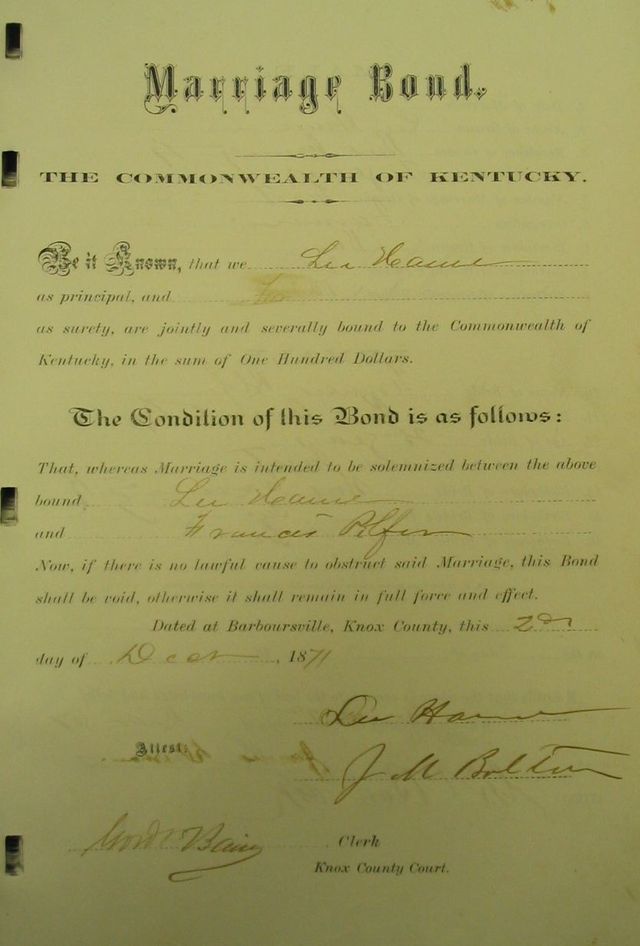 Marriage Bond.
THE COMMONWEALTH OF KENTUCKY.
Be it Known, that we
as principal, and
as surety, are jointly and severally bound to the Commonwealth of
Kentucky, in the sum of One Hundred Dollars.
The Condition of this Bond is as follows:
That, whereas Marriage is intended to be solemnized between the above
bound
and Francis
Now, if there is no lawful cause to obstruct said Marriage, this Bond
shall be void, otherwise it shall remain in full force and effect.
Dated at Barboursville, Knox County, this 2nd
day of , 1871
J M Bolton
Attest:
Clerk
Knox County Court.